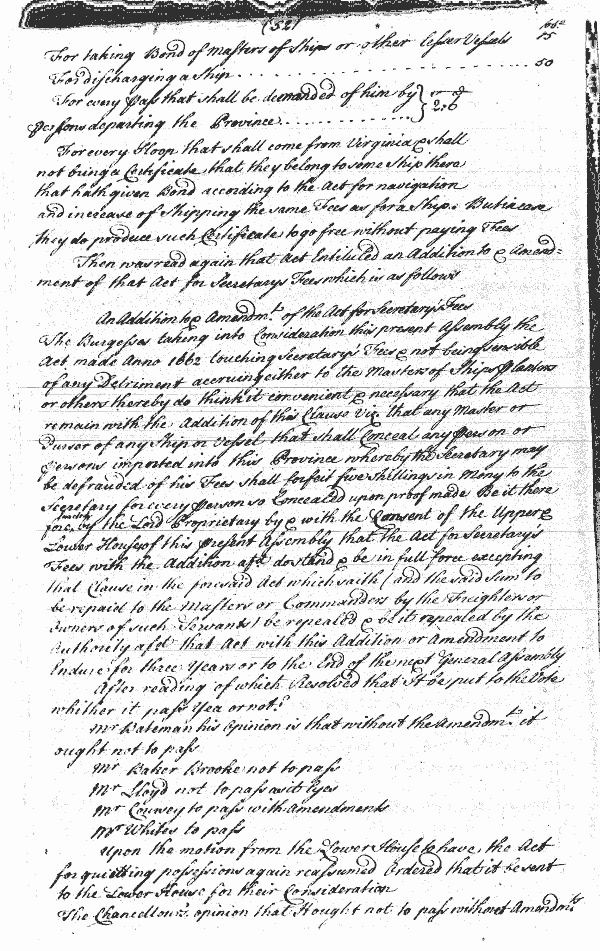 (52)
lbs.
For taking Bond of Masters of Ships or other lesser Vessels 15
For discharging a ship . . . . . . . . . . 50
For every pass that shall be demanded of him by
persons departing the Province . . . . . . . } 2:6
For every Sloop that shall come from Virginia & shall
not bring a Certificate that they belong to some Ship there
that hath given Bond according to the Act for navigation
and increase of Shipping the same Fees as for a Ship. But in case
they do produce such Certificate to go free without paying Fees
Then was read again that Act Entituled an Addition to & Amend=
ment of that Act for Secretarys Fees which is as follows
An Addition to & Amendmt. of the Act for Secretary's Fees
The Burgesses taking into Consideration this present Assembly the
Act made Anno 1662 touching Secretary's Fees & not being sensible
of any Detriment accruing either to the Masters of Ships Planters
or others thereby do think it convenient & necessary that the Act
remain with the Addition of this Clause Viz. that any Master or
Purser of any Ship or Vessel that shall Conceal any person or
persons imported into this Province whereby the Secretary may
be defrauded of his Fees shall forfeit five shillings in Mony to the
Secretary for every person so Concealed upon proof made Be it there
fore by the Lord Proprietary by & with the Consent of the Upper &
Lower House of this present Assembly that the Act for Secretary's
Fees with the Addition afd. do stand & be in full force excepting
that Clause in the foresaid Act which saith (and the said Sum to
be repaid to the Masters or Commanders by the Freighters or
owners of such Servants) be repealed & be it repealed by the
Authority afd. that Act with this Addition or Amendment to
Endure for three Years or to the End of the next General Assembly
After reading of which Resolved that It be put to the Vote
whither it pass Yea or not?
Mr Bateman his Opinion is that without the Amendmt. it
ought not to pass
Mr Baker Brooke not to pass
Mr Lloyd not to pass as it lyes
Mr Coursey to pass with amendments
Mr Whites to pass
Upon the motion from the Lower House to have the Act
for quietting possessions again reassumed Ordered that it be sent
to the Lower House for their Consideration
The Chancellours opinion that It ought not to pass without Amendmts